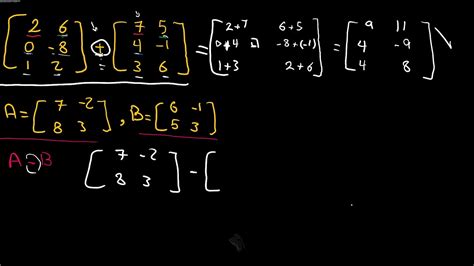 [2 6; 0 -8; 1 2] + [7 5; 4 -1; 3 6] = [2+7 6+5; 0+4 -8+(-1); 1+3 2+6] = [9 11; 4 -9; 4 8]
A = [7 -2; 8 3], B = [6 -1; 5 3]
A - B [7 -2; 8 3] - [